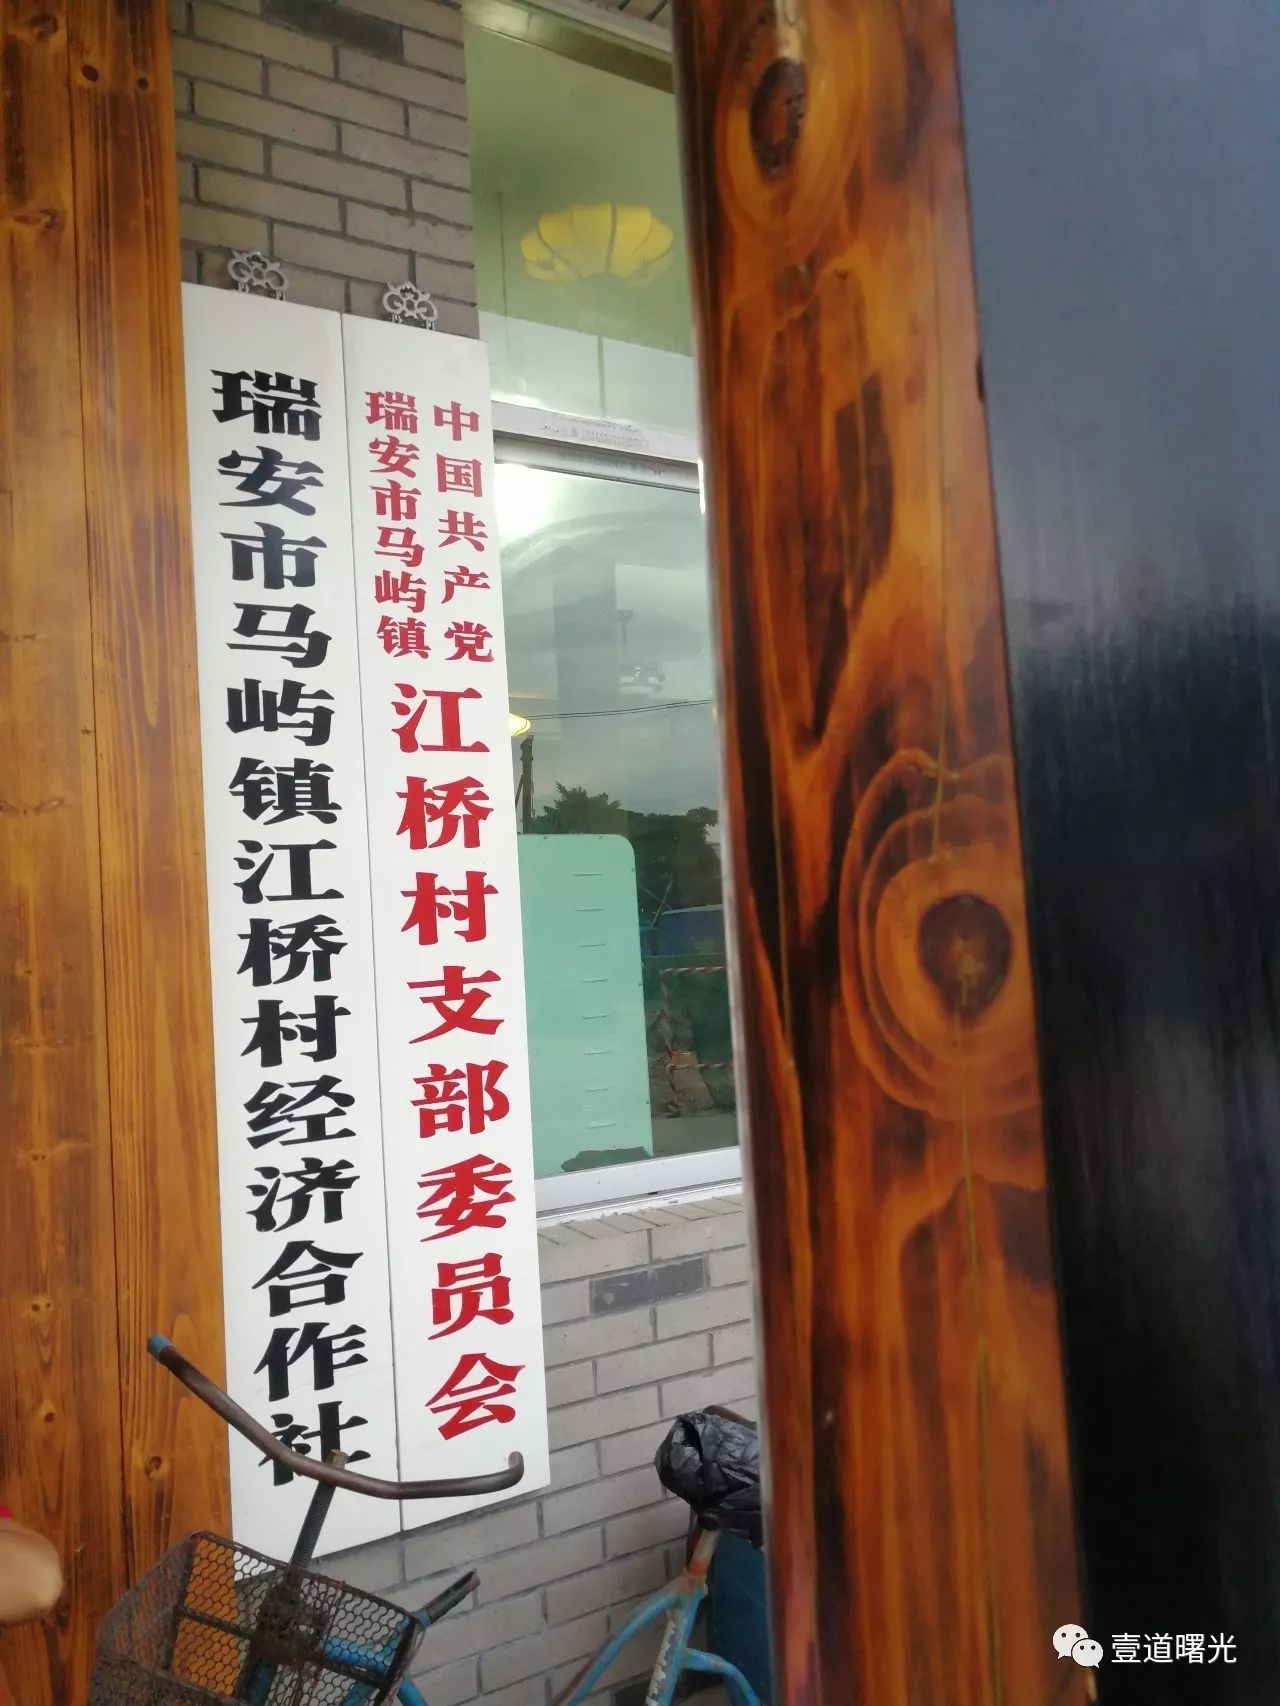 中国共产党
瑞安市马屿镇
江桥村支部委员会
瑞安市马屿镇江桥村经济合作社
壹道曙光